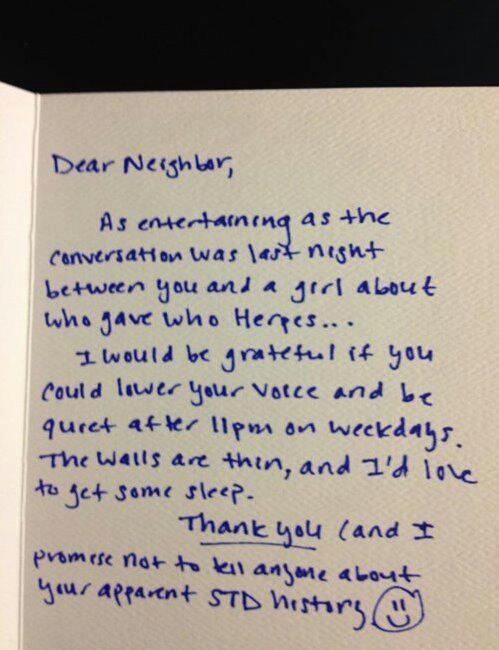 Dear Neighbor,
As entertaining as the
conversation was last night
between you and a girl about
who gave who Herpes...
I would be grateful if you
could lower your voice and be
quiet after 11pm on weekdays.
The walls are thin, and I'd love
to get some sleep.
Thank you (and I
promise not to tell anyone about
your apparent STD history